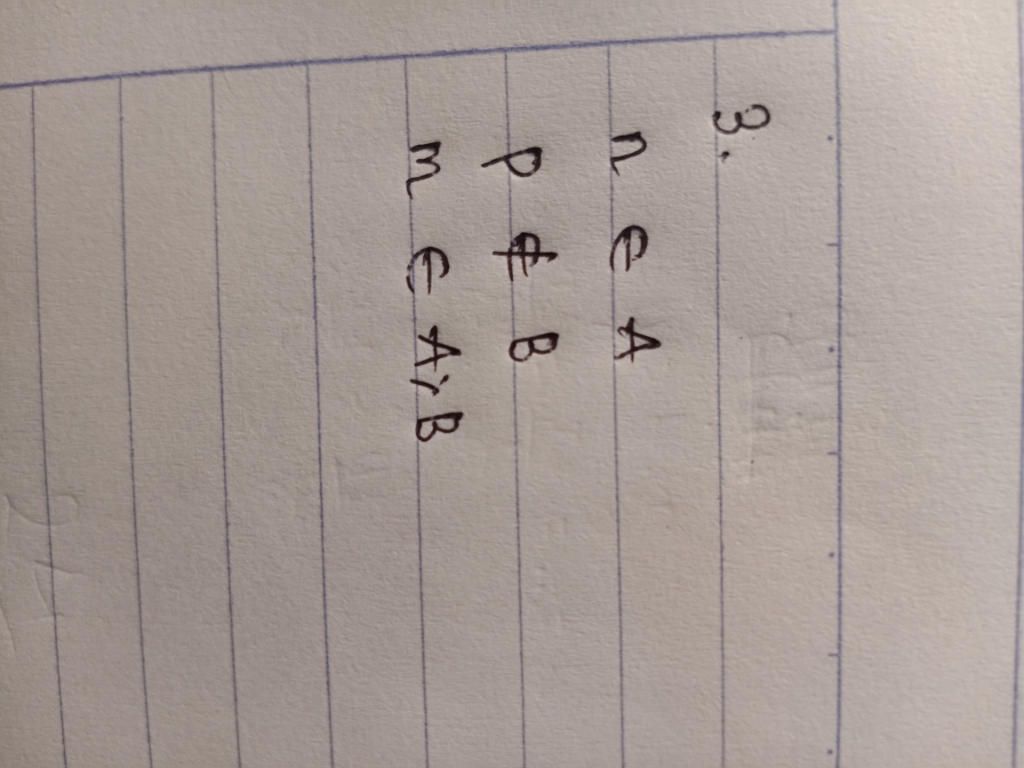 3.
n ∈ A
p ∉ B
m ∈ A, B